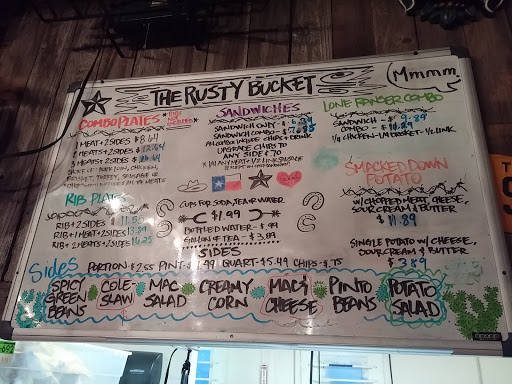 THE RUSTY BUCKET
Mmmm.
COMBO PLATES
1 MEAT + 2 SIDES $8.64
2 MEATS + 2 SIDES $12.64
3 MEATS + 2 SIDES
RIB PLATES
RIB + 2 SIDES 11.50
RIB + 1 MEAT + 2 SIDES 13.89
RIB + 2 MEATS + 2 SIDES 16.25
SANDWICHES
SANDWICH ONLY
SANDWICH COMBO -
ALL COMBOS INCLUDE CHIPS + DRINK
UPGRADE CHIPS TO
ANY SIDE $.70
CUPS FOR SODA, TEA OR WATER
$1.99
BOTTLED WATER - $.99
GALLON OF TEA - $3.89
LONE RANGER COMBO
SANDWICH - $9.89
COMBO - $11.89
1/4 CHICKEN - 1 M BRISKET - 1/2 LINK
SMACKED DOWN
POTATO
W/ CHOPPED MEAT, CHEESE,
SOUR CREAM & BUTTER
$11.89
SINGLE POTATO W/ CHEESE,
SOUR CREAM & BUTTER
$3.89
SIDES
Sides
PORTION - $2.55 PINT - QUART - $5.49 CHIPS - $.75
SPICY GREEN BEANS
COLE-SLAW
MAC SALAD
CREAMY CORN
MAC & CHEESE
PINTO BEANS
POTATO SALAD